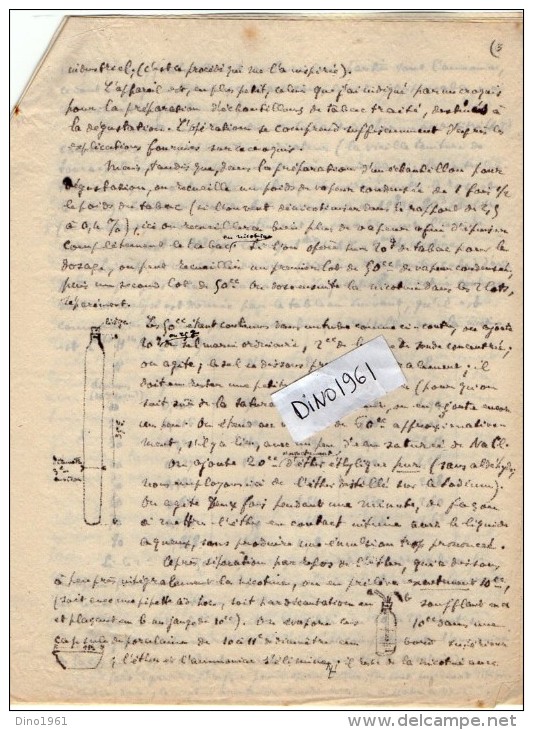 (3
menstruel, (c'est ce procédé qui me l'a inspirée).
L'appareil est, en plus petit, celui que j'ai indiqué par un croquis
pour la préparation d'échantillons de tabac traité, destinés à
la dégustation. L'opération se comprend suffisamment d'après les
explications fournies sur ce croquis.
Mais, tandis que, dans la préparation d'un échantillon pour
dégustation, on recueille un poids de vapeur condensée de 1 fois 1/2
le poids du tabac (si l'on veut dénicotiniser dans le rapport de 2,5
à 0,4 %), ici on recueillera bien plus de vapeur afin d'épuiser
en nicotine
complètement le tabac. Si l'on opère sur 20g de tabac pour le
dosage, on peut recueillir un premier lot de 50cc de vapeur condensée,
puis un second lot de 50cc. On dose ensuite la nicotine dans les 2 lots,
séparément.
liège
Les 50cc étant contenus dans un tube comme ci-contre, on ajoute
ou 25
20g de sel marin ordinaire, 2cc de lessive de soude concentrée;
on agite; le sel se dissous
il
doit en rester une petite
(pour qu'on
soit sûr de la satura
on en ajoute encore
un peu. On étend
de 60cc approximative
ment, s'il y a lieu, avec un peu d'eau saturée de NaCl.
35c
diamètre
3c
environ
exactement
On ajoute 20cc d'éther éthylique pur (sans aldéhyde,
nous employons ici de l'éther distillé sur le sodium).
On agite deux fois pendant une minute, de façon
à mettre l'éther en contact intime avec le liquide
aqueux, sans produire une émulsion trop prononcée.
Après séparation par repos de l'éther, qui a dissous
à peu près intégralement la nicotine, on en prélève exactement 10cc,
(soit avec une pipette à
soit par décantation en
b
soufflant en a
et plaçant en b un
de 10cc). On évapore ces
10cc dans une
capsule de porcelaine de 10 à 11c de diamètre au
bord supérieur
; l'éther et l'ammoniac s'éliminent; il reste de la nicotine avec
DINO1961
Dino1961
www.delcampe.net